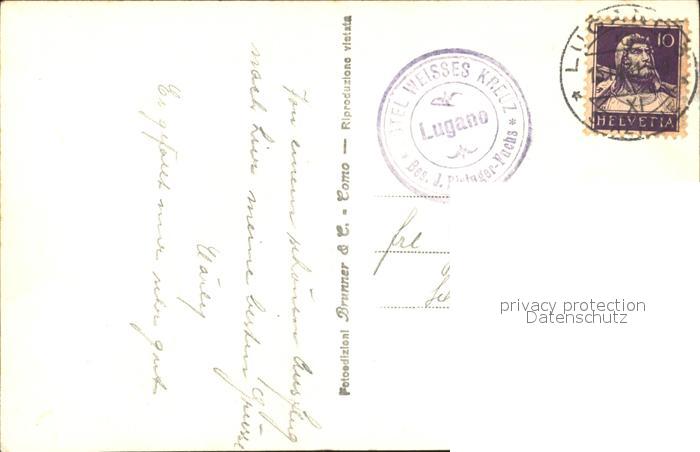 Von einem schönen Ausflug
nach hier meine besten
Grüsse
Es gefällt mir sehr gut
Fotoedizioni Brunner & C. - Como — Riproduzione vietata
HOTEL WEISSES KREUZ
Lugano
Bes. J.
LUGANO
XI
10
HELVETIA
Frl
privacy protection
Datenschutz